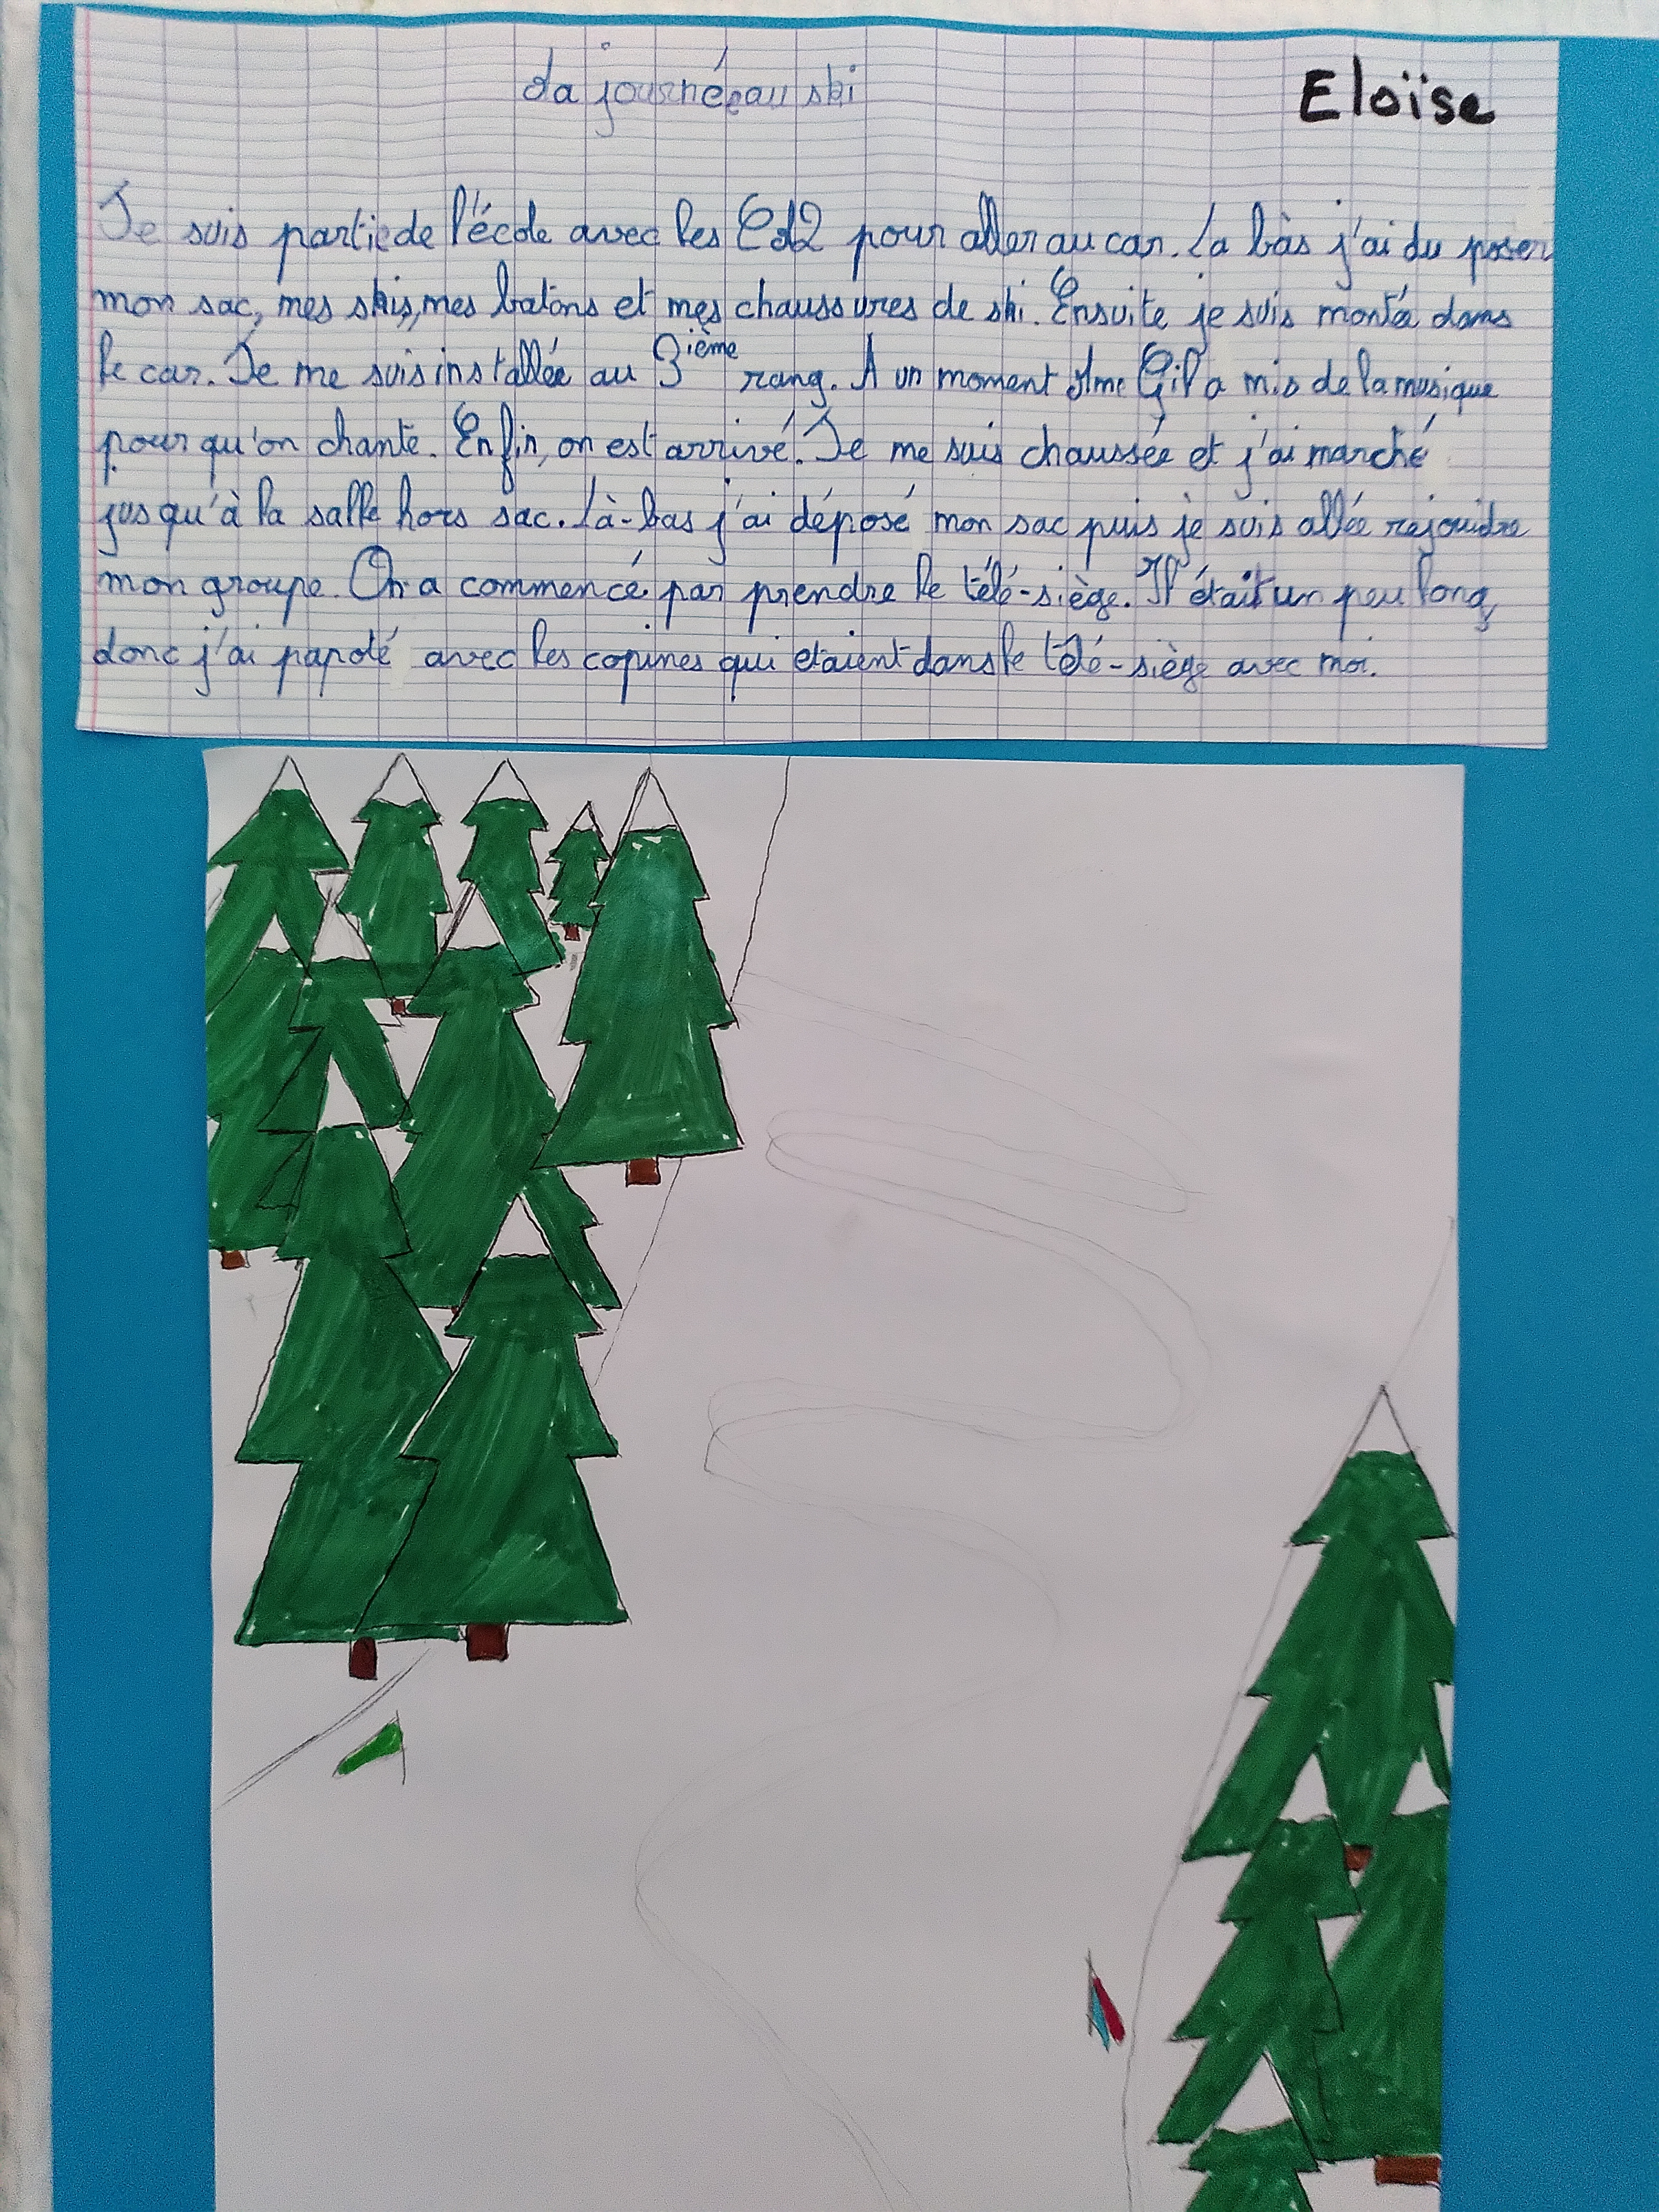 La journée au ski
Eloïse
Je suis partie de l'école avec les CM2 pour aller au car. La bàs j'ai du poser
mon sac, mes skis, mes batons et mes chaussures de ski. Ensuite je suis montée dans
le car. Je me suis installée au 3ième rang. A un moment Mme Gil a mis de la musique
pour qu'on chante. Enfin, on est arrivé. Je me suis chaussée et j'ai marché
jusqu'à la salle hors sac. Là-bas j'ai déposé mon sac puis je suis allée rejoindre
mon groupe. On a commencé par prendre le télé-siège. Il était un peu long,
donc j'ai papoté avec les copines qui etaient dans le télé-siège avec moi.